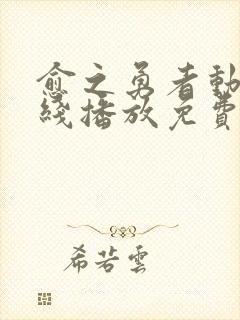 愈之勇者動
綫播放免費
希若雲